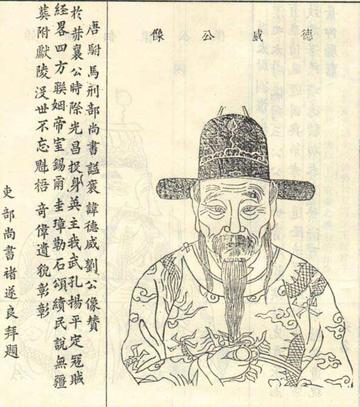 德威公像
唐駙馬刑部尚書謚襄諱德威劉公像贊
於赤襄公時除光昌挺身英主我武孔揚平定冦賊
經畧四方聯姻帝室錫爾圭璋勒石頌績民說無疆
葬附獻陵沒世不忘魁梧奇偉遺貌彰彰
吏部尚書褚遂良拜題